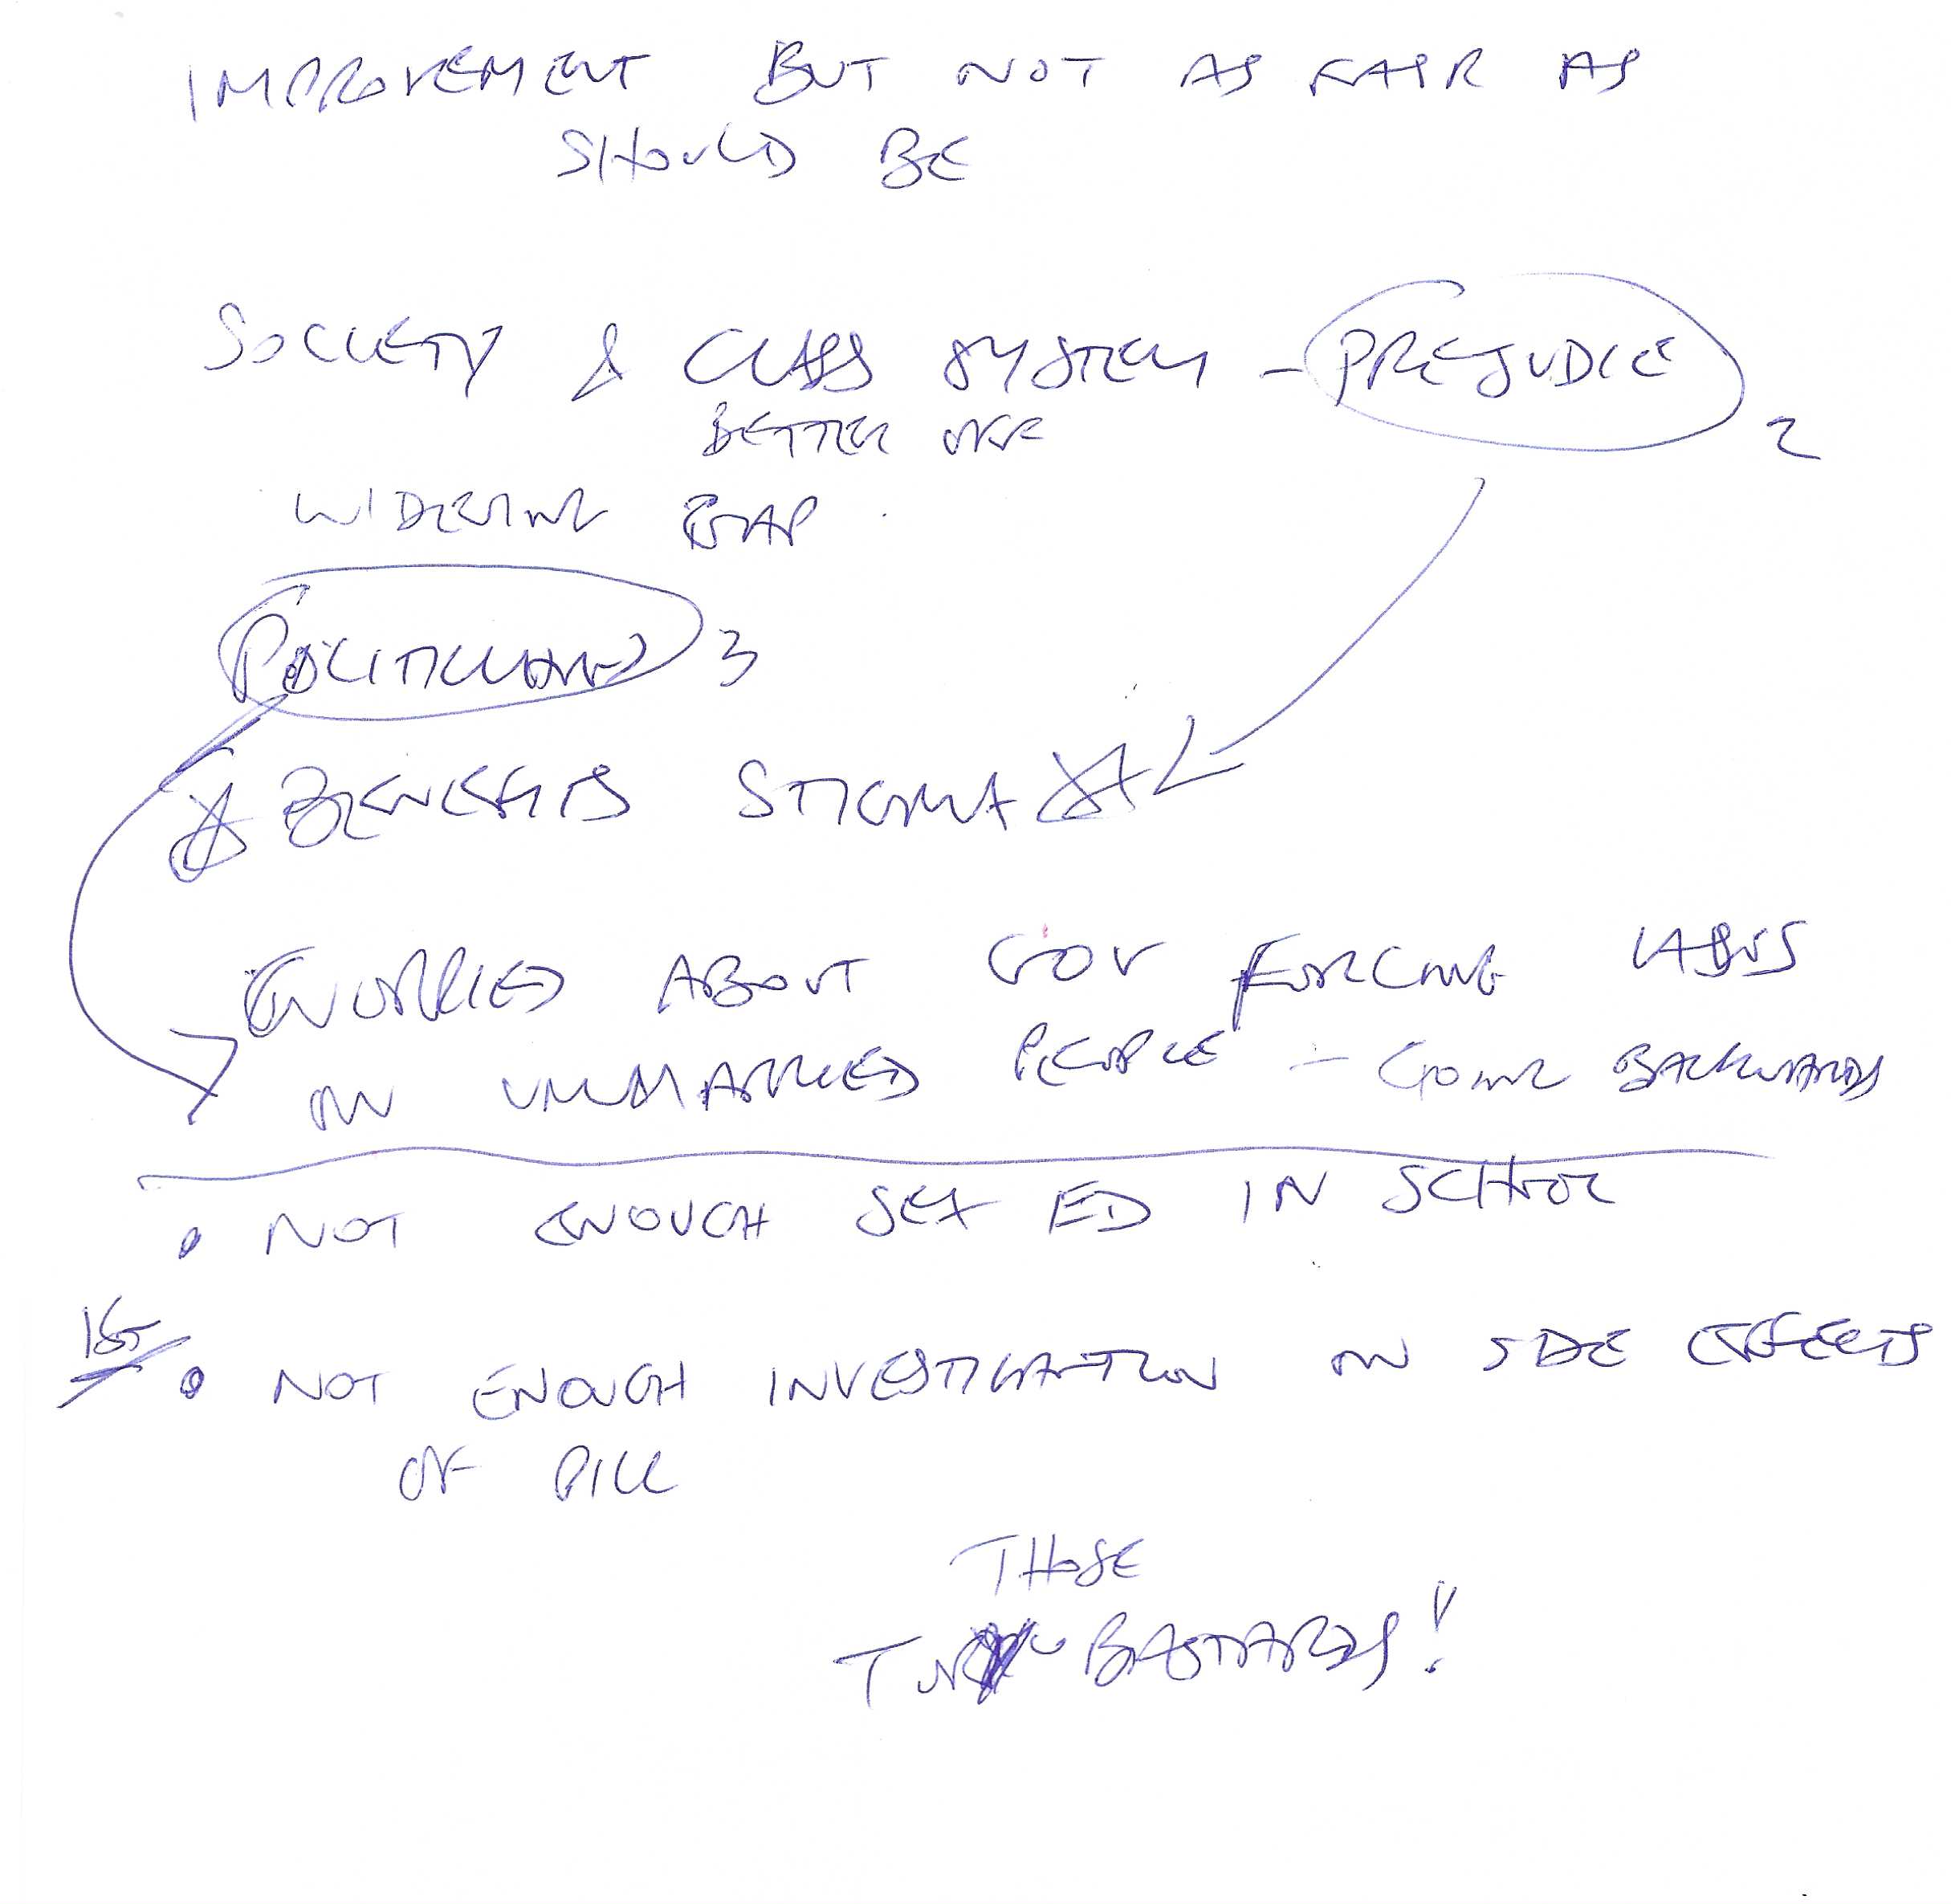 IMPROVEMENT BUT NOT AS FAIR AS
SHOULD BE
SOCIETY & CLASS SYSTEM - PREJUDICE 2
BETTER OFF
WIDENING GAP
POLITICIANS 3
BENEFITS STIGMA
WORRIED ABOUT GOV FORCING LAWS
ON UNMARRIED PEOPLE - GOING BACKWARDS
• NOT ENOUGH SEX ED IN SCHOOL
1ST
• NOT ENOUGH INVESTIGATION ON SIDE EFFECTS
OF PILL
THOSE
BASTARDS!